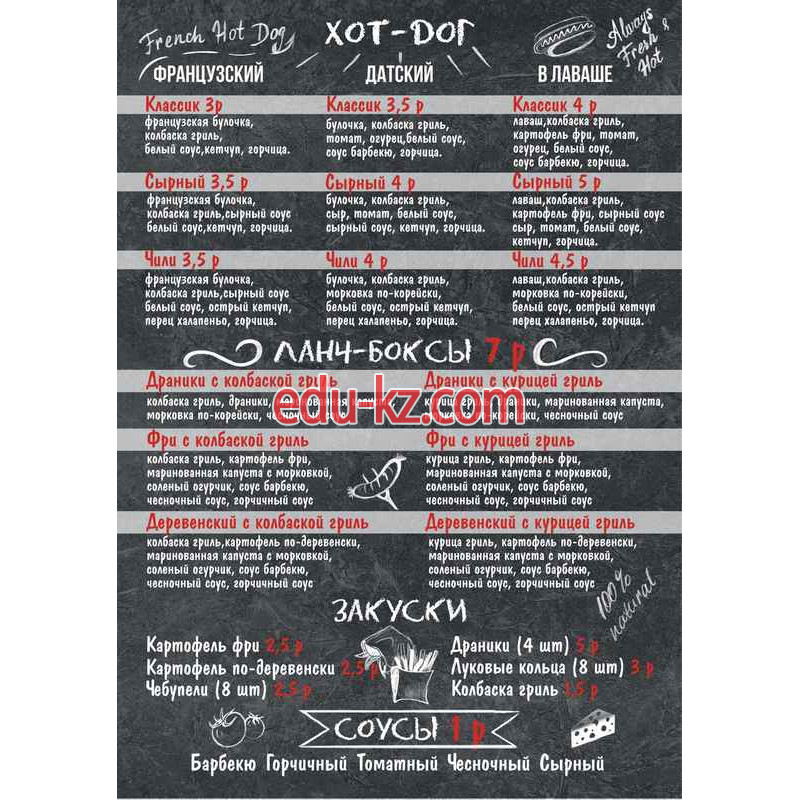 French Hot Dog
ХОТ-ДОГ
Always
Fresh &
Hot
ФРАНЦУЗСКИЙ ДАТСКИЙ В ЛАВАШЕ
Классик 3р
французская булочка,
колбаска гриль,
белый соус,кетчуп, горчица.
Классик 3,5 р
булочка, колбаска гриль,
томат, огурец,белый соус,
соус барбекю, горчица.
Классик 4 р
лаваш,колбаска гриль,
картофель фри, томат,
огурец, белый соус,
соус барбекю, горчица.
Сырный 3,5 р
французская булочка,
колбаска гриль,сырный соус
белый соус,кетчуп, горчица.
Сырный 4 р
булочка, колбаска гриль,
сыр, томат, белый соус,
сырный соус, кетчуп, горчица.
Сырный 5 р
лаваш,колбаска гриль,
картофель фри, сырный соус
сыр, томат, белый соус,
кетчуп, горчица.
Чили 3,5 р
французская булочка,
колбаска гриль,сырный соус
белый соус, острый кетчуп,
перец халапеньо, горчица.
Чили 4 р
булочка, колбаска гриль,
морковка по-корейски,
белый соус, острый кетчуп,
перец халапеньо, горчица.
Чили 4,5 р
лаваш,колбаска гриль,
морковка по-корейски,
белый соус, острый кетчуп
перец халапеньо, горчица.
ЛАНЧ-БОКСЫ 7 р
Драники с колбаской гриль
колбаска гриль, драники,
морковка по-корейски, соус
Драники с курицей гриль
курица гриль, маринованная капуста,
чесночный соус
edu-kz.com
Фри с колбаской гриль
колбаска гриль, картофель фри,
маринованная капуста с морковкой,
соленый огурчик, соус барбекю,
чесночный соус, горчичный соус
Фри с курицей гриль
курица гриль, картофель фри,
маринованная капуста с морковкой,
соленый огурчик, соус барбекю,
чесночный соус, горчичный соус
Деревенский с колбаской гриль
колбаска гриль,картофель по-деревенски,
маринованная капуста с морковкой,
соленый огурчик, соус барбекю,
чесночный соус, горчичный соус
Деревенский с курицей гриль
курица гриль, картофель по-деревенски,
маринованная капуста с морковкой,
соленый огурчик, соус барбекю,
чесночный соус, горчичный соус
100%
natural
ЗАКУСКИ
Картофель фри 2,5 р
Картофель по-деревенски 2,5 р
Чебупели (8 шт) 2,5 р
Драники (4 шт) 5 р
Луковые кольца (8 шт) 3 р
Колбаска гриль 1,5 р
СОУСЫ 1 р
Барбекю Горчичный Томатный Чесночный Сырный